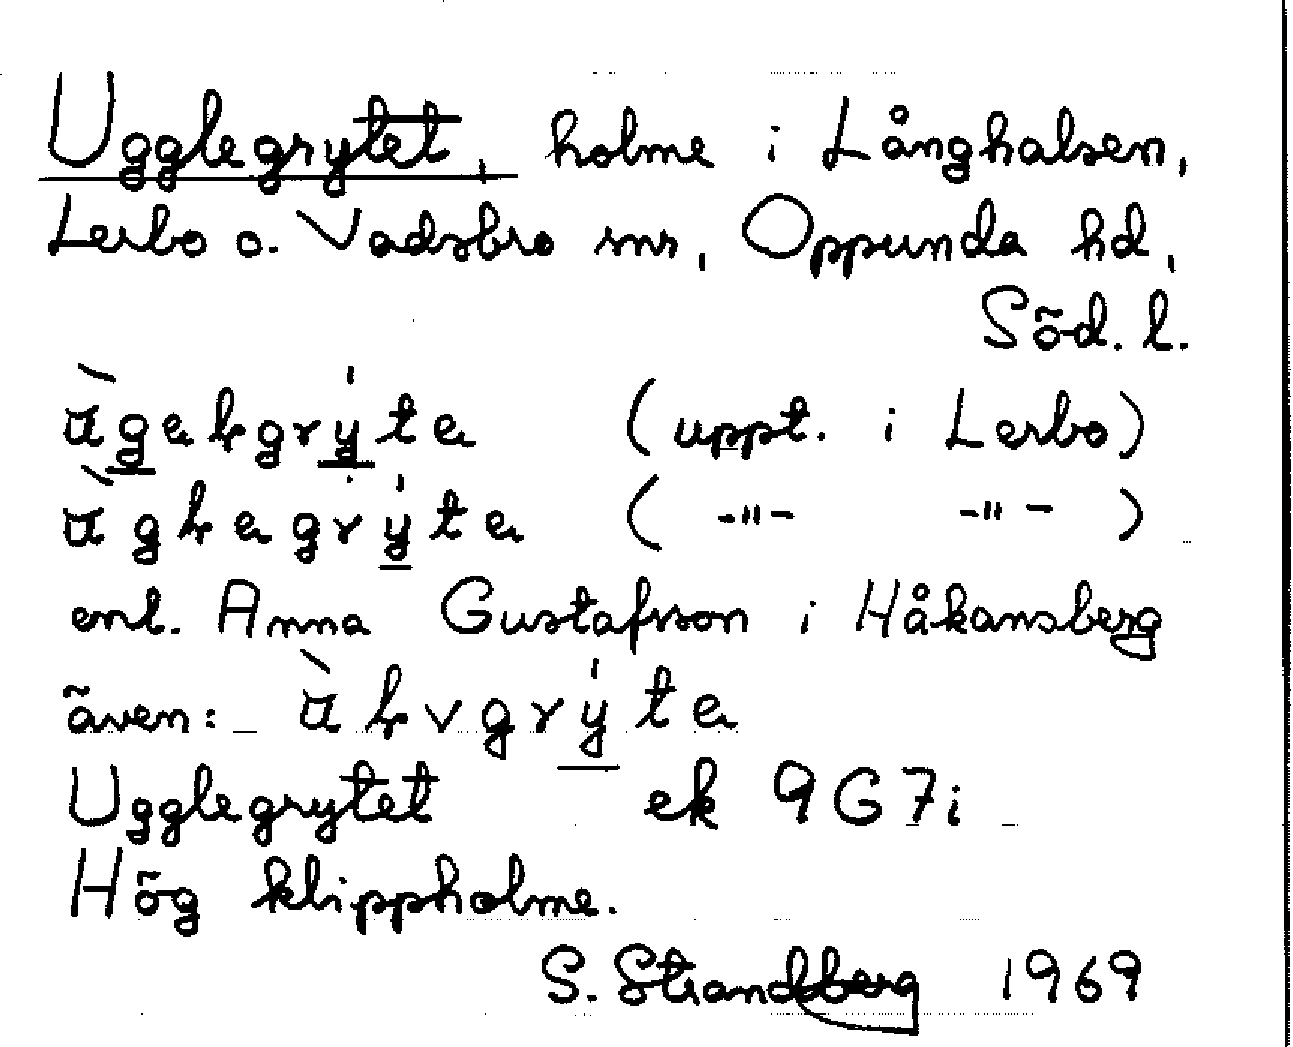 Ugglegrytet, holme i Långhalsen,
Lerbo o. Vadsbro snr, Oppunda hd,
Söd. l.
(uppt. i Lerbo)
( -"- -"- )
enl. Anna Gustafsson i Håkansberg
även:
Ugglegrytet ek 9G7i
Hög klippholme.
S. Strandberg 1969